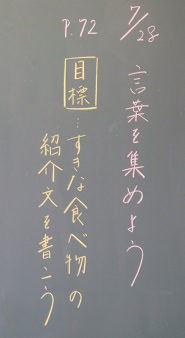 7/28
言葉を集めよう
P.72
目標…すきな食べ物の
紹介文を書こう